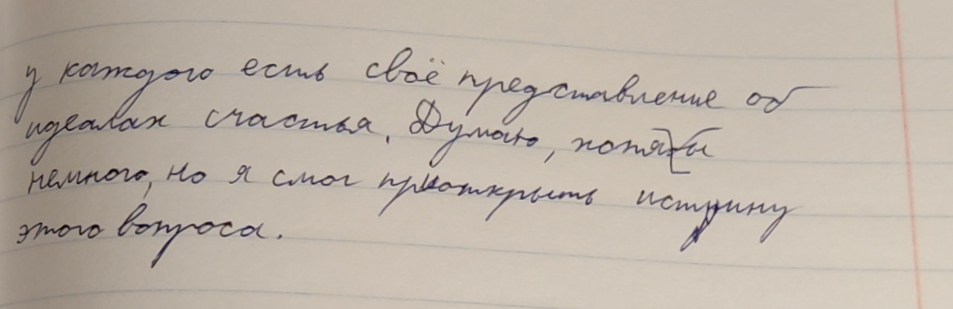 у каждого есть своё представление об
идеалах счастья. Думаю, хотя бы
немного, но я смог приоткрыть истину
этого вопроса.